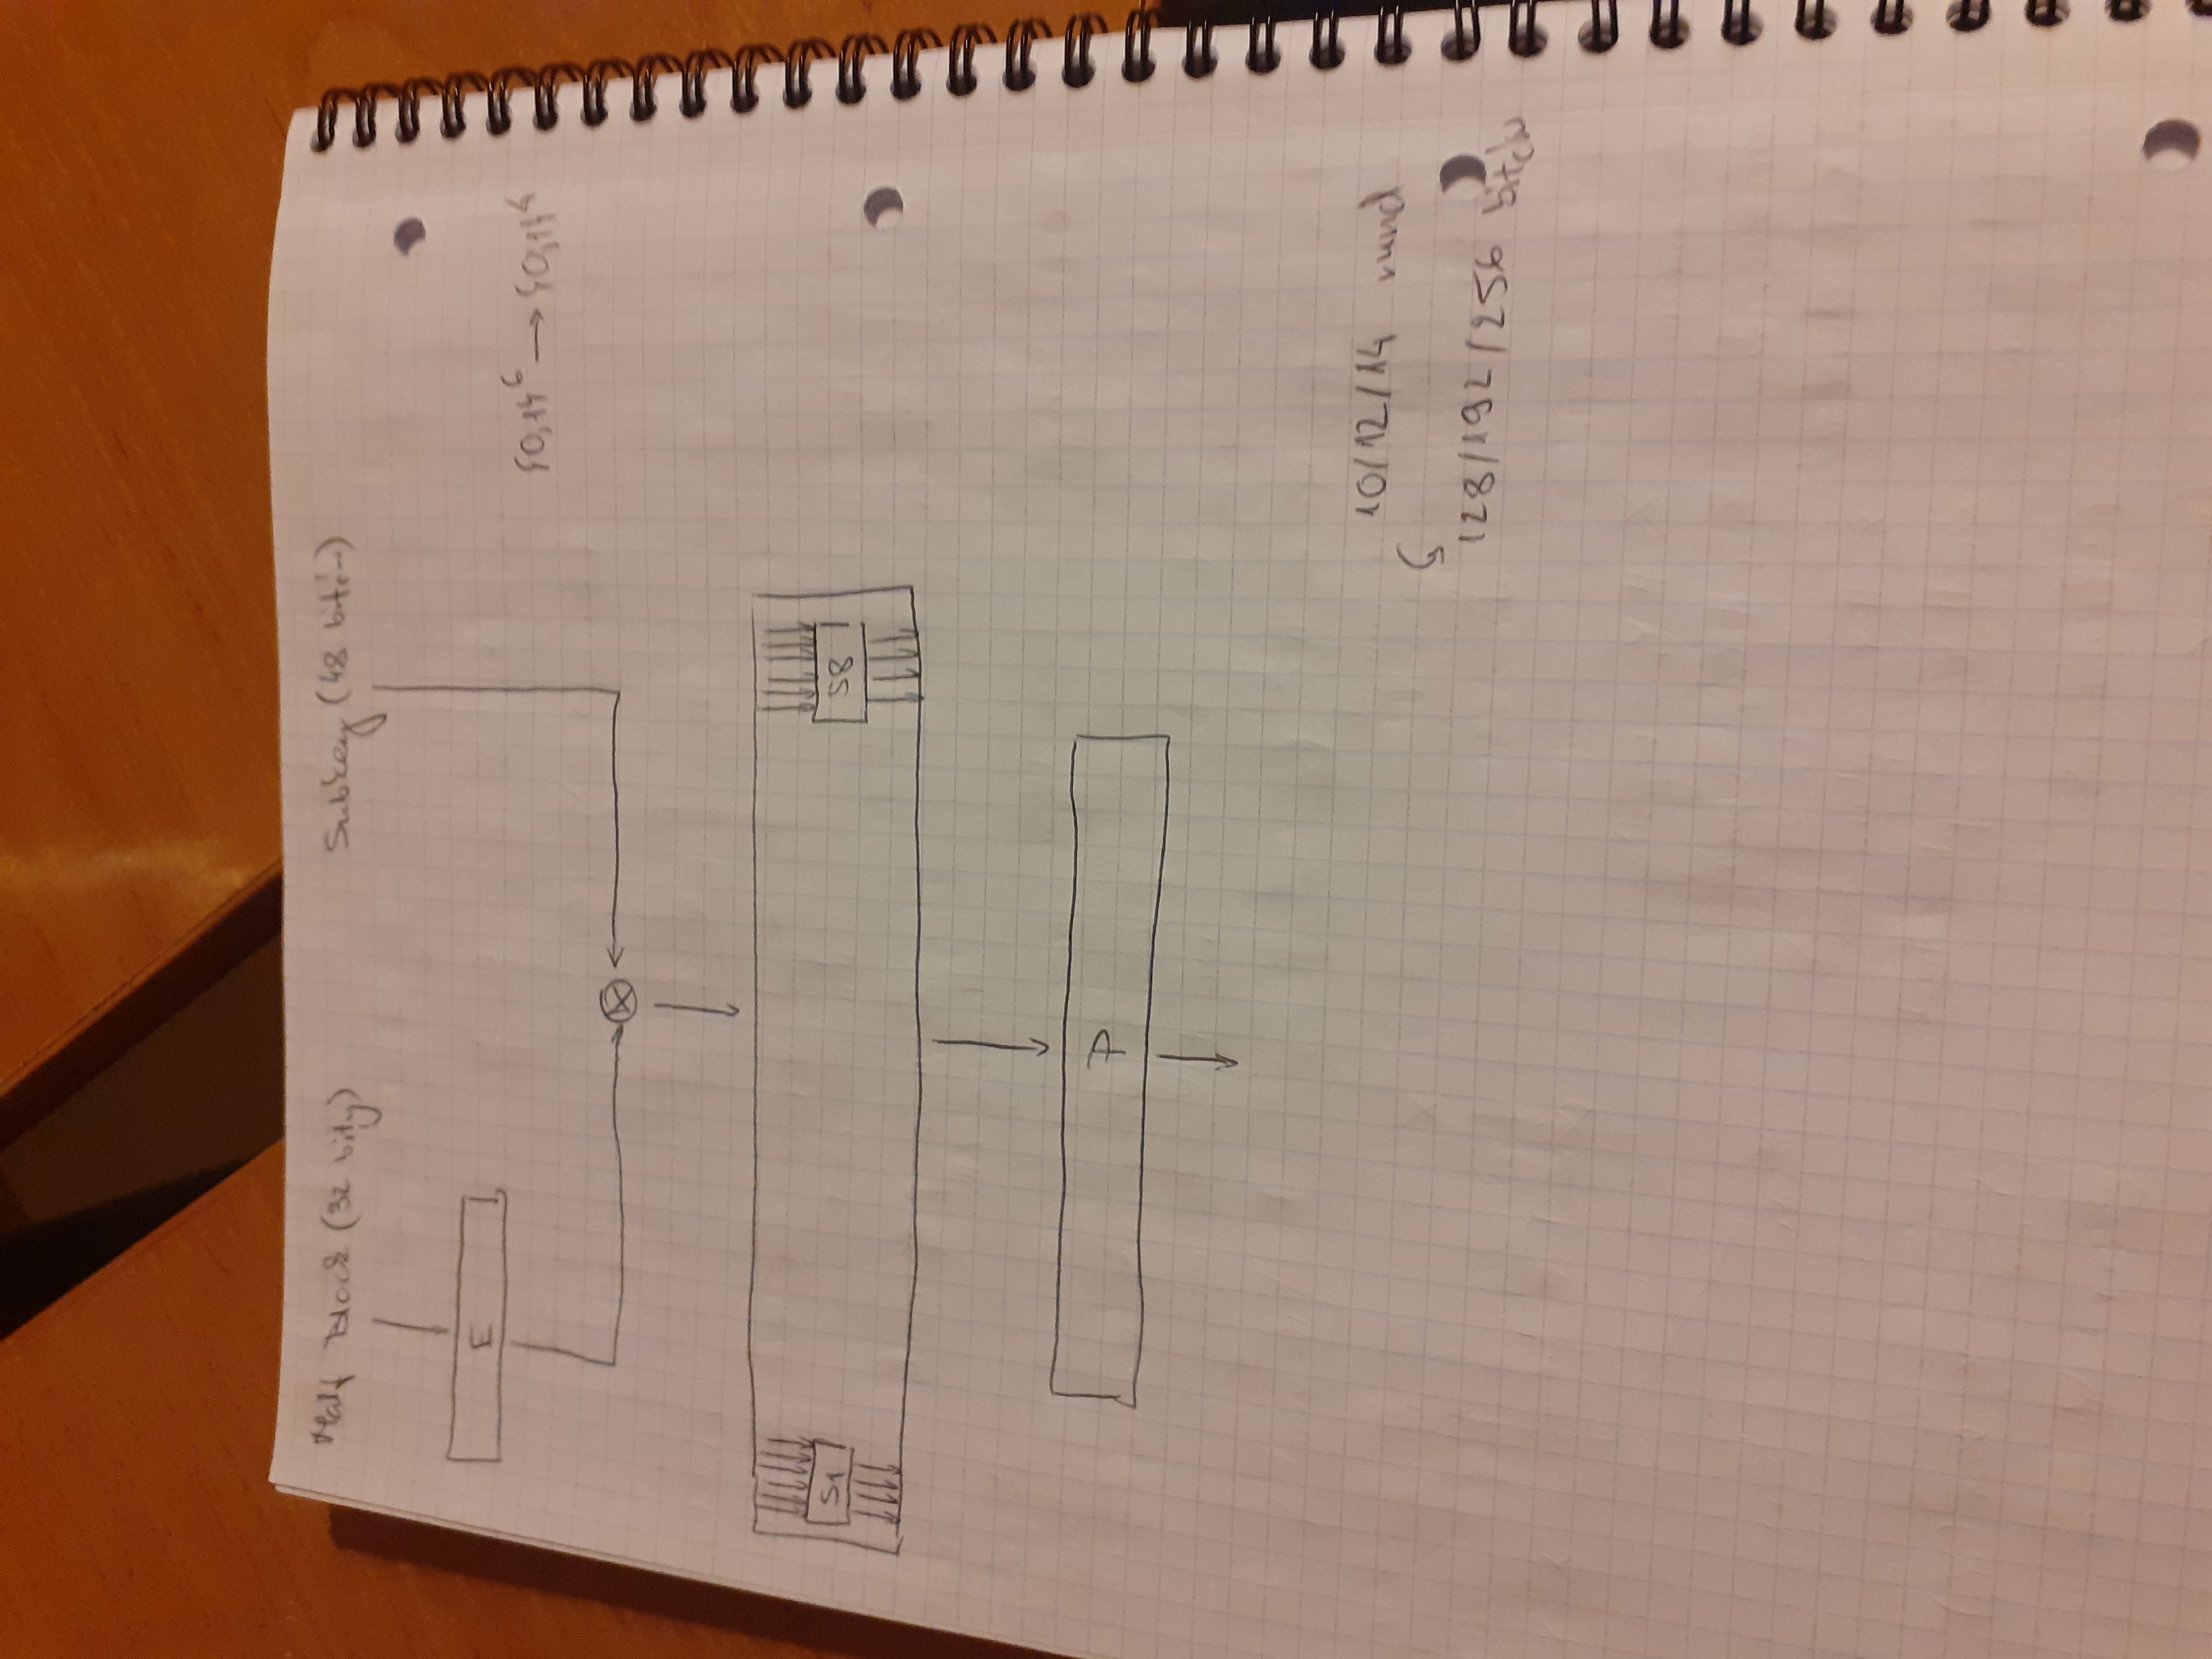 Half Block (32 bity)
Subkey (48 bitów)
E
{0,1}⁶ → {0,1}⁴
S1
S8
P
10/12/14 rund
128/192/256 bitów